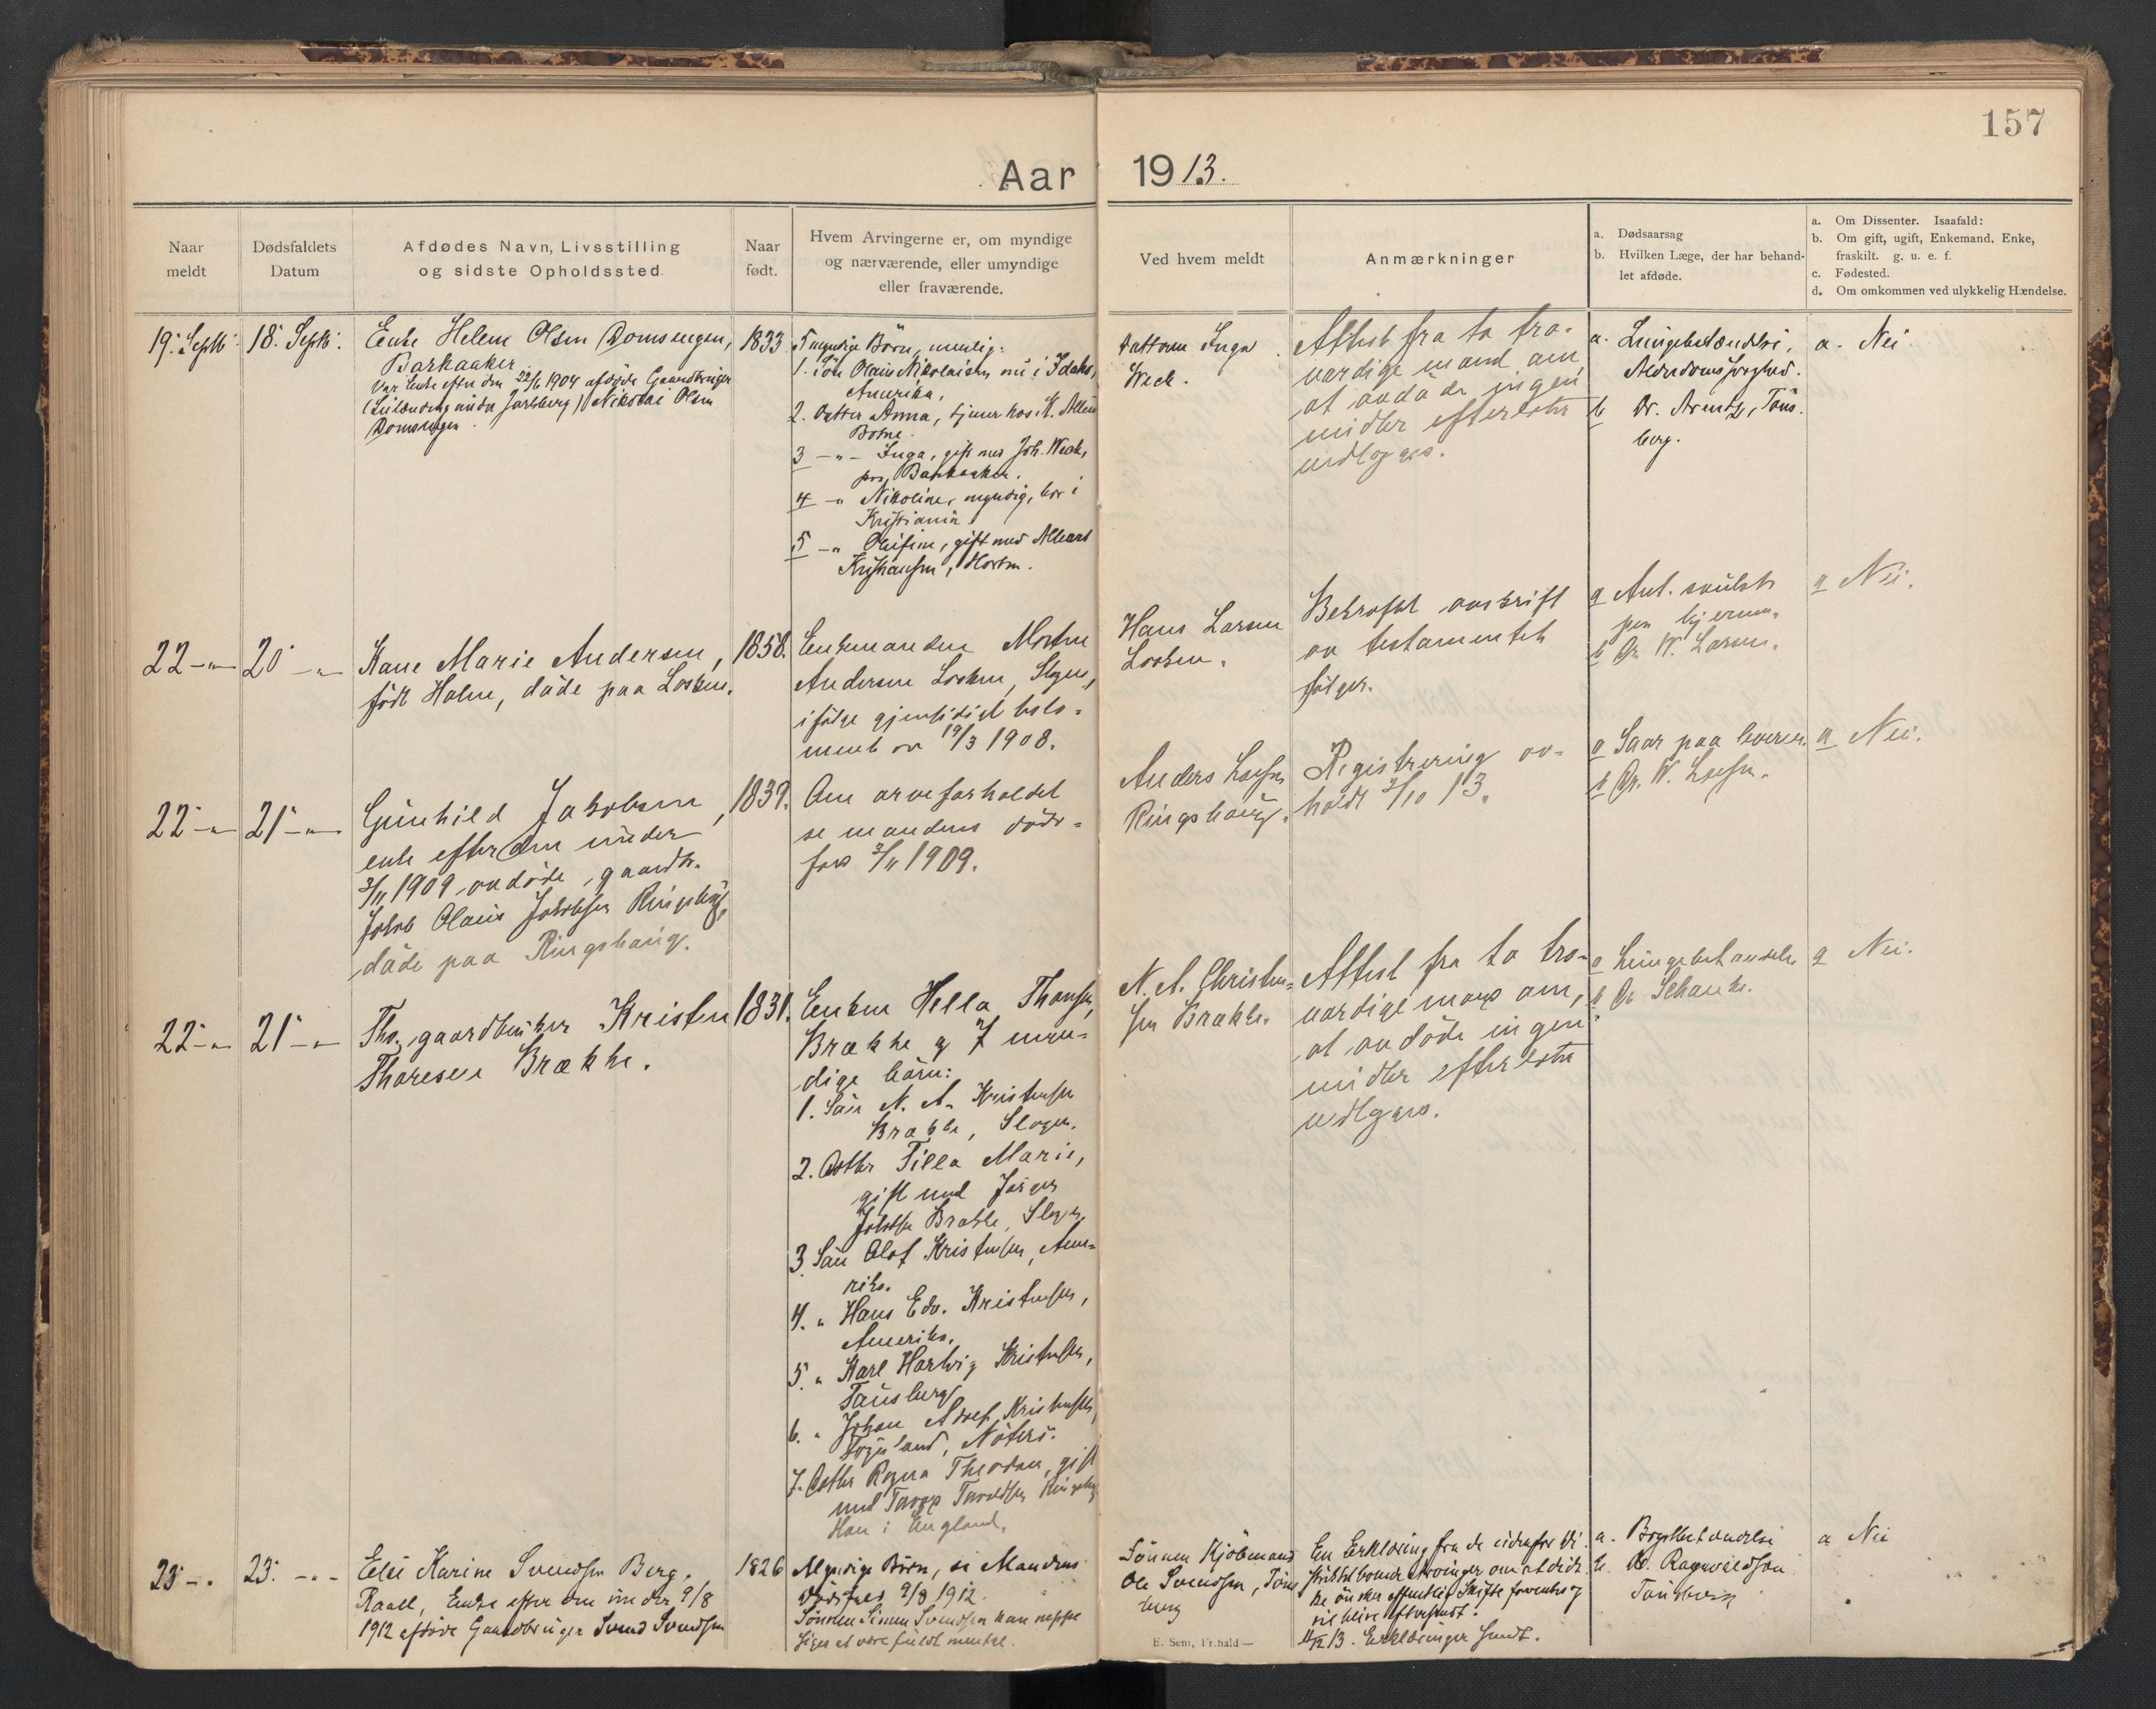 157
Aar 1913.
Naar meldt
Dødsfaldets Datum
Afdødes Navn, Livsstilling og sidste Opholdssted.
Naar født.
Hvem Arvingerne er, om myndige og nærværende, eller umyndige eller fraværende.
Ved hvem meldt
Anmærkninger
a. Dødsaarsag
b. Hvilken Læge, der har behand-
let afdøde.
a. Om Dissenter. Isaafald:
b. Om gift, ugift, Enkemand, Enke,
fraskilt. g. u. e. f.
c. Fødested.
d. Om omkommen ved ulykkelig Hændelse.
19. Septb.
18. Septb.
Enke Helene Olsen Domsengen,
Barkaaker
Var Enke efter den 22/6 1904 afdøde Gaardbruger
(Leilænding under Jarlsberg) Nikolai Olsen
Domsengen.
1833
5 myndige Börn, nemlig:
1. Sön Olaus Nikolaisen nu i Idaho,
Amerika,
2. Datter Anna, tjener hos
Botne.
3 -"- Inga, gift med Joh. Weck,
Barkaaker.
4 -" Nikoline, myndig, bor i
Kristiania
5 -" gift med
Kristiansen, Horten.
Datteren Inga
Weck.
Attest fra to tro-
værdige mænd om,
at avdøde ingen
midler efterlater
utlegges.
a. Lungebetændelse,
Alderdomssvaghed.
b Dr. Arentz, Töns-
berg.
a. Nei.
22 -"-
20 -"-
Hane Marie Andersen,
født Holm, døde paa Losken.
1858.
Enkemanden Morten
Andersen Losken, Slagen,
ifölge gjensidigt testa-
ment av 19/3 1908.
Hans Larsen
Losken.
Bekræftet avskrift
av testamentet
følger.
a Ant. svulst
paa hjernen.
b Dr. W. Larsen.
a Nei.
22 -"-
21 -"-
Gunhild Jakobsen,
enke efter den under
3/11 1909 avdøde gaardbr.
Jakob Olaus Jakobsen Ringshaug,
døde paa Ringshaug.
1839.
Om arveforholdet
se mandens döds-
fald 3/11 1909.
Anders
Ringshaug.
Registrering av-
holdt 3/10 13.
a Saar paa leveren.
b Dr. W.
a Nei.
22 -"-
21 -"-
Fhv. gaardbruker Kristen
Thoresen Brække.
1831.
Enken Hella
Brække og 7 myn-
dige börn:
1. Sön N. A. Kristensen
Brække, Slagen.
2. Datter Tilla Marie,
gift med Jörgen
Jakobsen Brække, Slagen.
3. Sön Olof Kristensen, Ame-
rika.
4. " Hans Edv. Kristensen,
Amerika.
5. " Karl Hartvig Kristensen,
Tönsberg
6. " Johan Adolf Kristensen,
Föynland, Nöterö.
7. Datter Ragna Theodora, gift
med
Han i England.
N. A. Christen-
sen Brække.
Attest fra to tro-
værdige mænd om,
at avdöde ingen
midler efterlater
utlegges.
a Lungebetændelse
b Dr Schanke.
a Nei.
23 -"-
23. -"-
Elie Karine Svendsen Berg,
Raael, Enke efter den under 9/8
1912 afdøde Gaardbruger Svend Svendsen
1826
Myndige Börn, se Mandens
Dödsfald 9/8 1912.
Sönnen Simen Svendsen kan neppe
siges at være fuldt
Sönnen Kjöbmand
Ole Svendsen, Töns-
berg
En Erklæring fra de
Arvinger om at de ikke
önsker offentlig Skifte forventes og
vil blive eftersendt.
13. Erklæringer sendt.
a. Brystbetændelse
b. Dr. Ragnvaldson
Tönsberg
a Nei
E. Sem, Fr.hald —